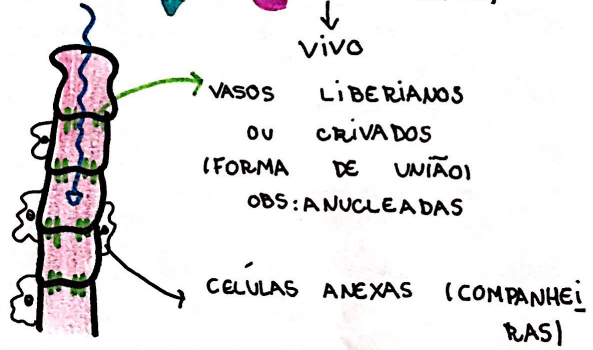 VIVO
VASOS LIBERIANOS
OU CRIVADOS
(FORMA DE UNIÃO)
OBS: ANUCLEADAS
CELÚLAS ANEXAS (COMPANHEI
RAS)